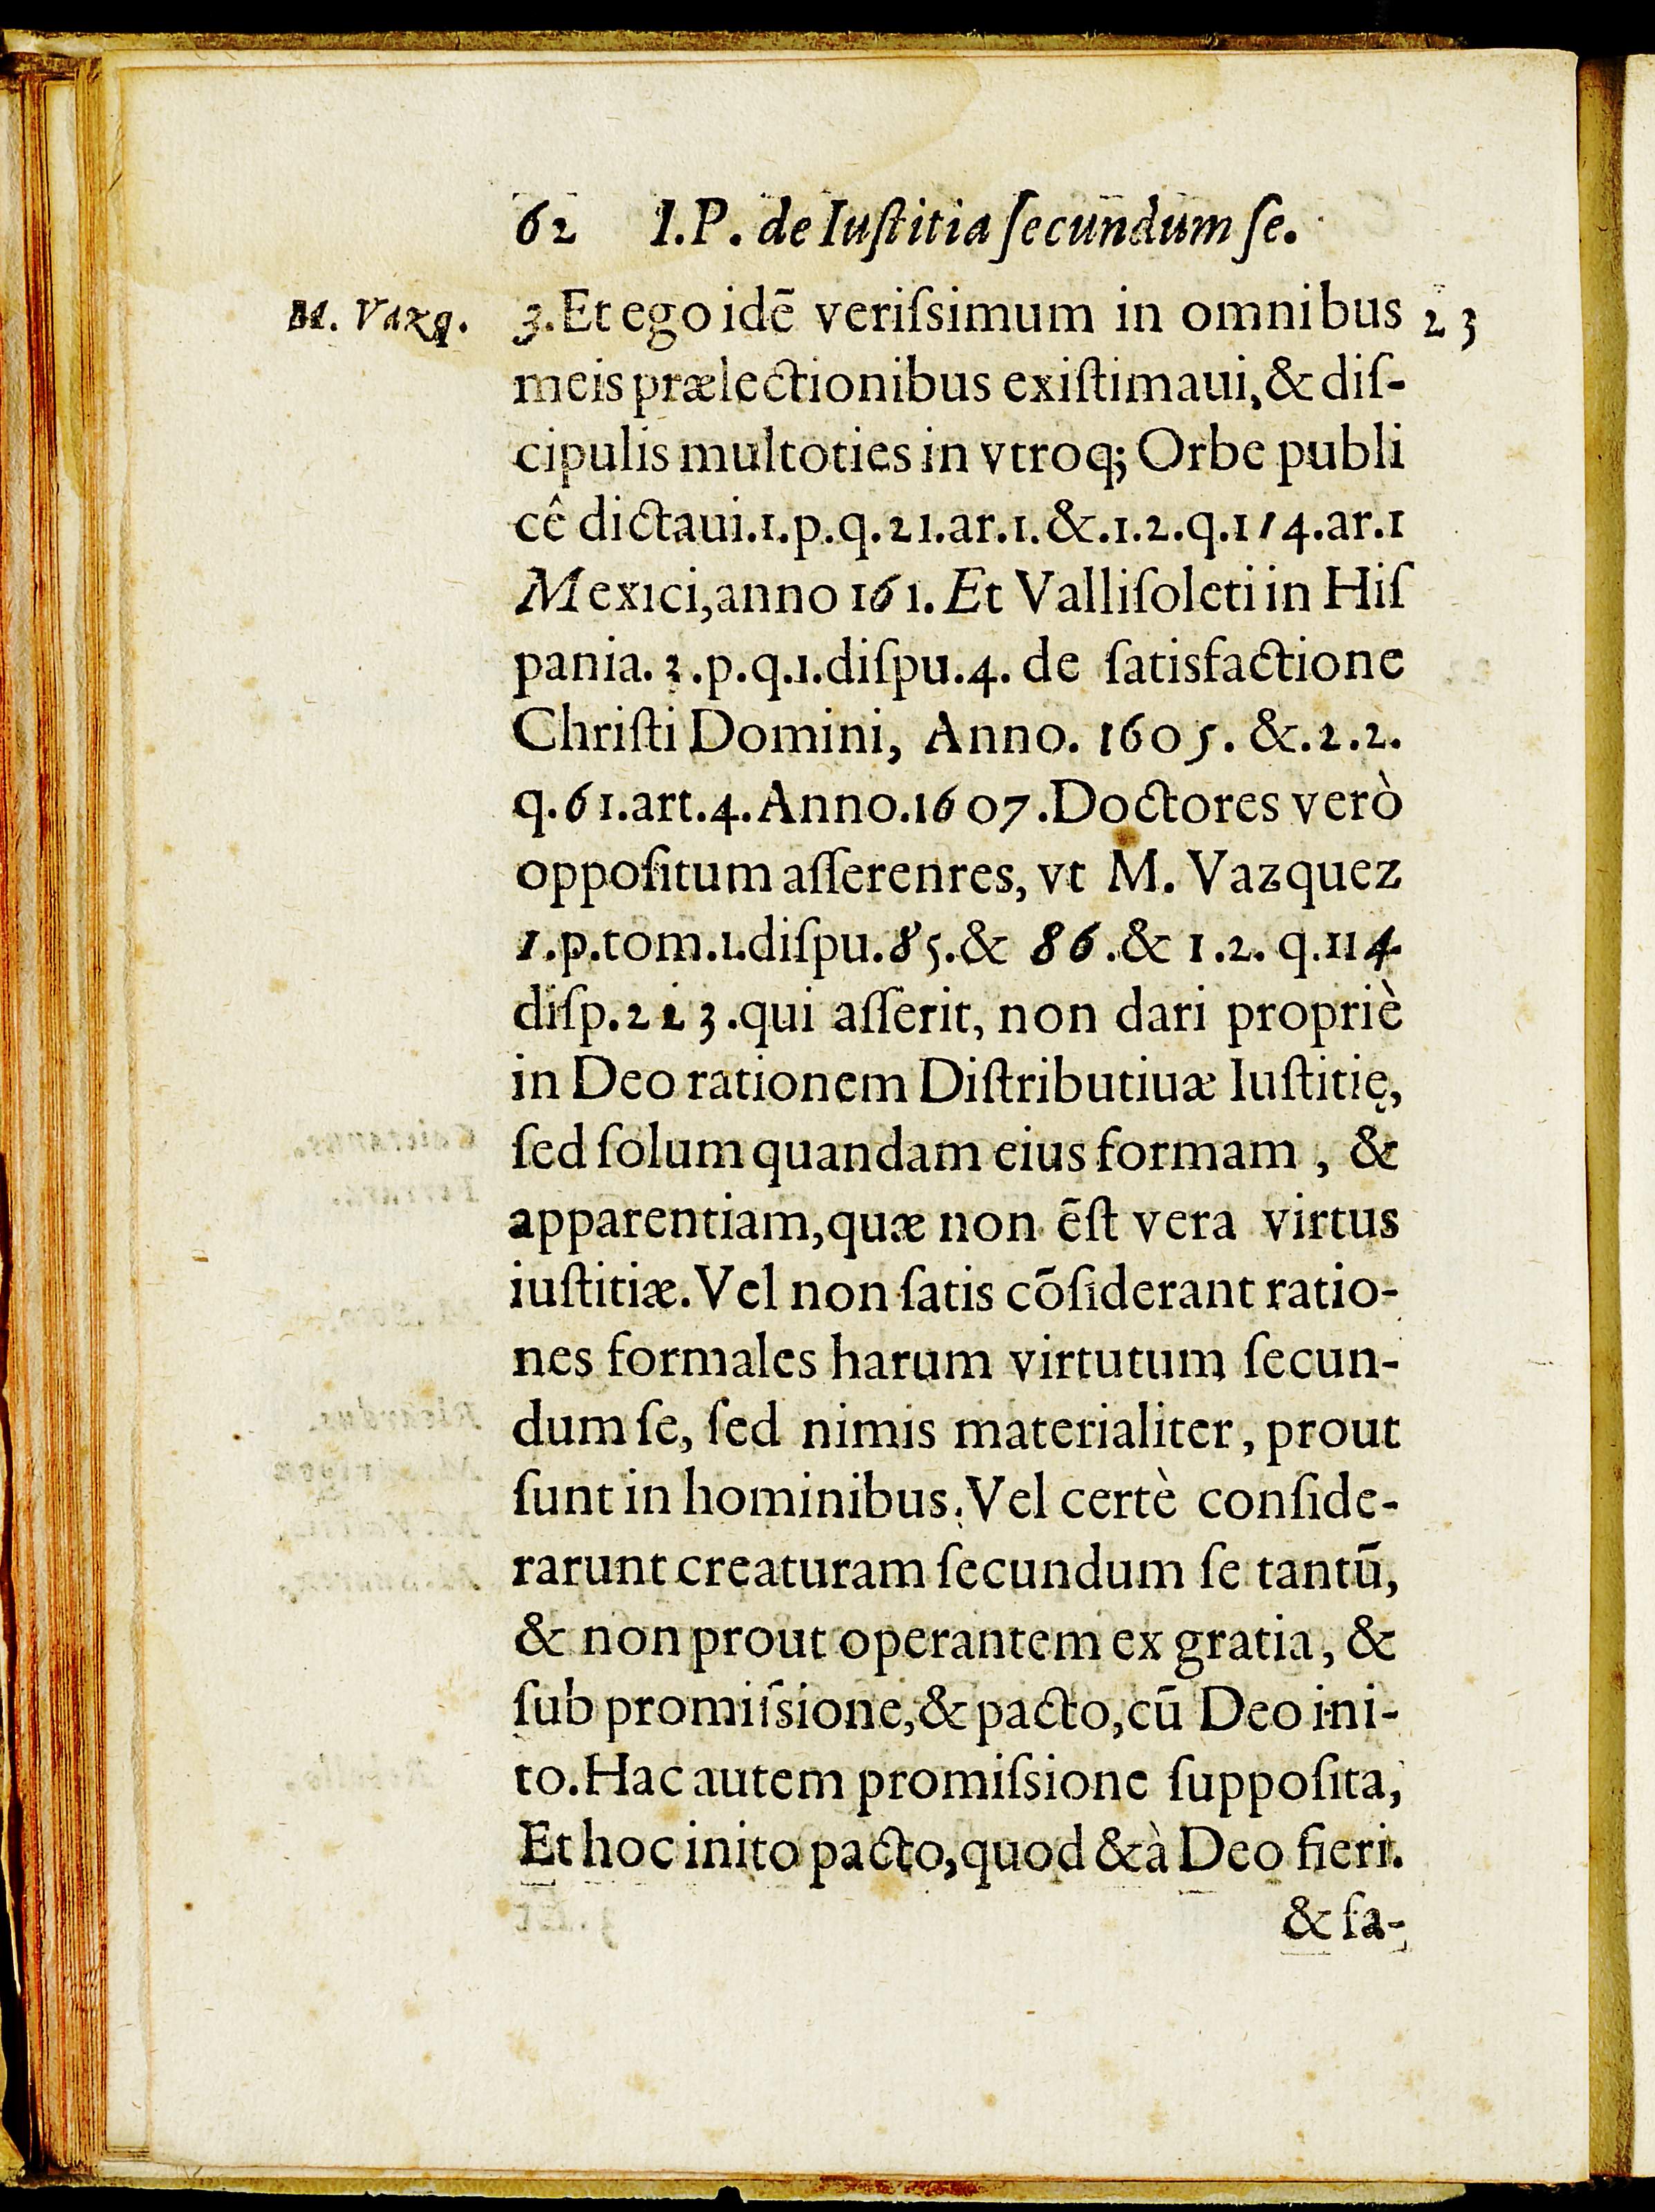 62 I.P. de Iuſtitia ſecundum ſe.
M. Vazq.
3. Et ego idē veriſsimum in omnibus 23
meis prælectionibus exiſtimaui, & diſ-
cipulis multoties in vtroq; Orbe publi
cê dictaui. 1. p. q. 21. ar. 1. &. 1. 2. q. 114. ar. 1
Mexici, anno 161. Et Valliſoleti in Hiſ
pania. 3. p. q. 1. diſpu. 4. de ſatisfactione
Chriſti Domini, Anno. 1605. &. 2. 2.
q. 61. art. 4. Anno. 1607. Doctores verò
oppoſitum aſſerenres, vt M. Vazquez
1. p. tom. 1. diſpu. 85. & 86. & 1. 2. q. 114.
diſp. 223. qui aſſerit, non dari propriè
in Deo rationem Diſtributiuæ Iuſtitię,
ſed ſolum quandam eius formam, &
apparentiam, quæ non ēſt vera virtus
iuſtitiæ. Vel non ſatis cōſiderant ratio-
nes formales harum virtutum ſecun-
dum ſe, ſed nimis materialiter, prout
ſunt in hominibus. Vel certè conſide-
rarunt creaturam ſecundum ſe tantū,
& non prout operantem ex gratia, &
ſub promiſsione, & pacto, cū Deo ini-
to. Hac autem promiſsione ſuppoſita,
Et hoc inito pacto, quod & à Deo fieri.
& ſa-